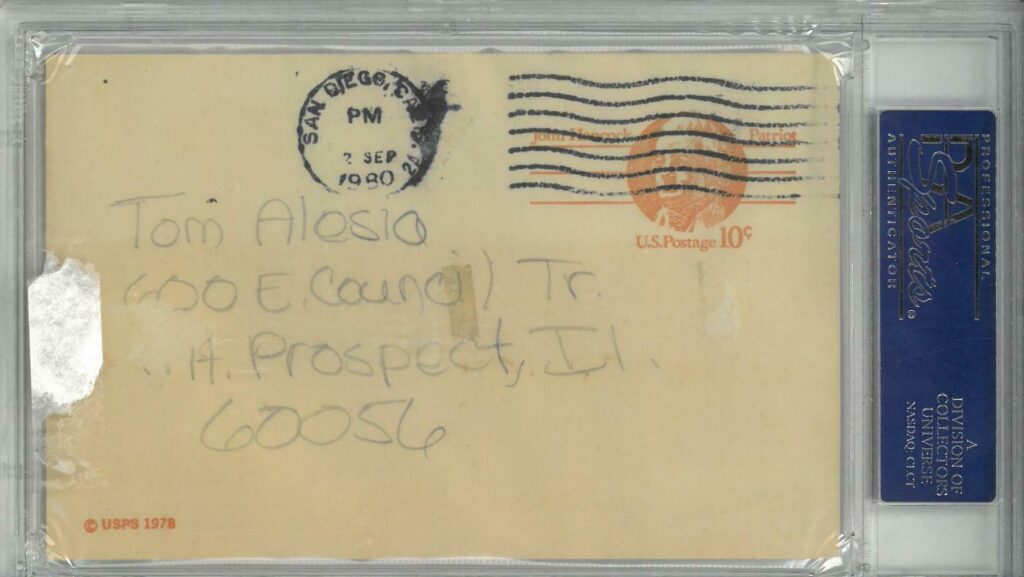 SAN DIEGO, CA
PM
2 SEP
1980
John Hancock Patriot
U.S. Postage 10¢
Tom Alesia
600 E. Council Tr.
. . H. Prospect, Il.
60056
© USPS 1978
PROFESSIONAL
PSA
Sports
AUTHENTICATOR
A
DIVISION OF
COLLECTORS
UNIVERSE
NASDAQ: CLCT